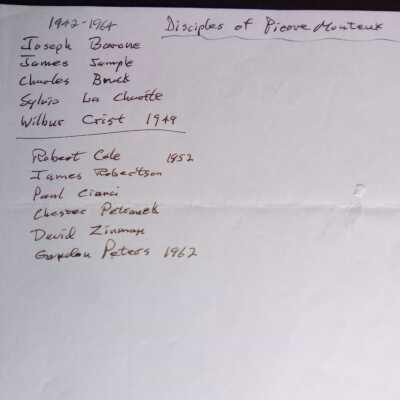 1942-1964 Disciples of Pierre Monteux
Joseph Barone
James Sample
Charles Bruck
Sylvio La
Wilbur Crist 1949
Robert Cole 1952
James Robertson
Paul Cianci
Chester
David Zinman
Gordon Peters 1962